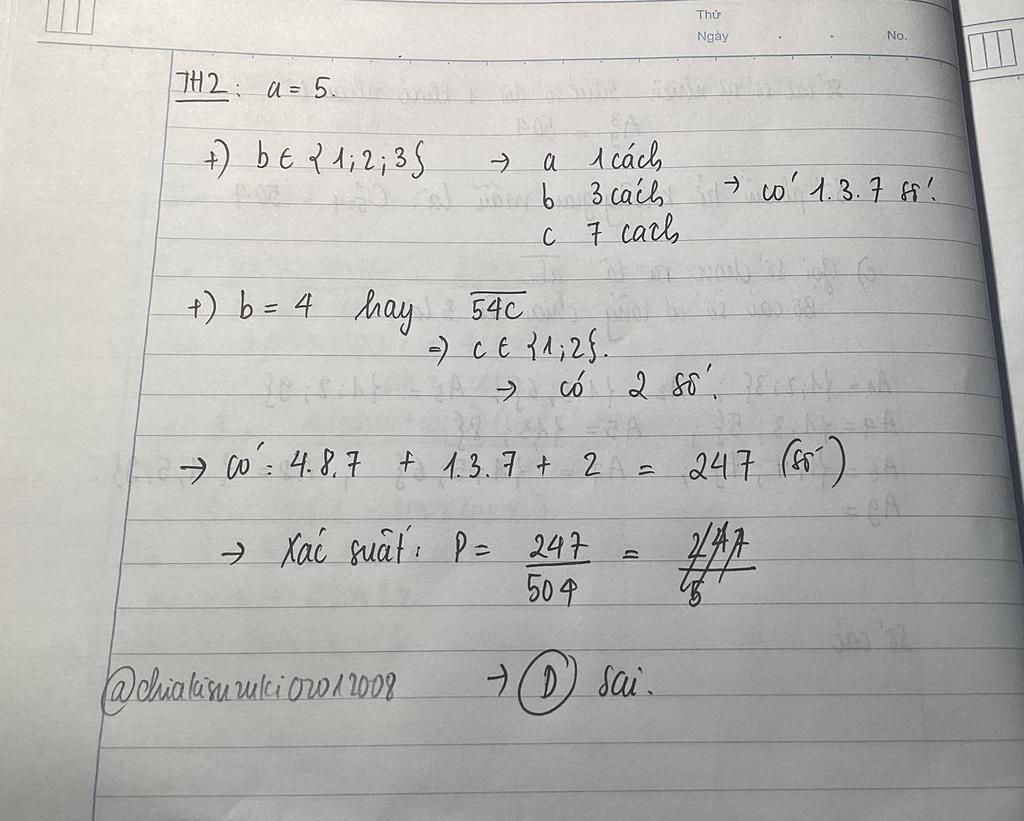 Thứ
Ngày . . No.
TH2: a = 5.
+) b ∈ {1; 2; 3} → a 1 cách
b 3 cách → có 1.3.7 số.
c 7 cach
+) b = 4 hay \overline{54c}
⇒ c ∈ {1; 2}.
→ có 2 số.
→ có: 4.8.7 + 1.3.7 + 2 = 247 (số)
→ Xác suất: P = 247/504 =
@chiakisuzuki02012008 → D sai.